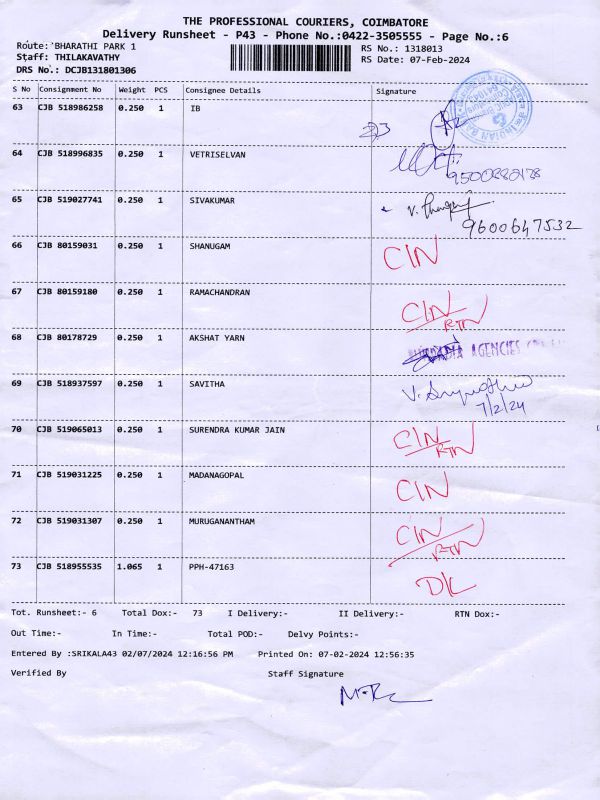 THE PROFESSIONAL COURIERS, COIMBATORE
Delivery Runsheet - P43 - Phone No.:0422-3505555 - Page No.:6
Route: BHARATHI PARK 1 RS No.: 1318013
Staff: THILAKAVATHY RS Date: 07-Feb-2024
DRS No.: DCJB131801306
S No Consignment No Weight PCS Consignee Details Signature
63 CJB 518986258 0.250 1 IB
64 CJB 518996835 0.250 1 VETRISELVAN
65 CJB 519027741 0.250 1 SIVAKUMAR
9600647532
66 CJB 80159031 0.250 1 SHANUGAM CIN
67 CJB 80159180 0.250 1 RAMACHANDRAN CIN
RTN
68 CJB 80178729 0.250 1 AKSHAT YARN AGENCIES
69 CJB 518937597 0.250 1 SAVITHA
7/2/24
70 CJB 519065013 0.250 1 SURENDRA KUMAR JAIN CIN
RTN
71 CJB 519031225 0.250 1 MADANAGOPAL CIN
72 CJB 519031307 0.250 1 MURUGANANTHAM CIN
RTN
73 CJB 518955535 1.065 1 PPH-47163 DK
Tot. Runsheet:- 6 Total Dox:- 73 I Delivery:- II Delivery:- RTN Dox:-
Out Time:- In Time:- Total POD:- Delvy Points:-
Entered By :SRIKALA43 02/07/2024 12:16:56 PM Printed On: 07-02-2024 12:56:35
Verified By Staff Signature